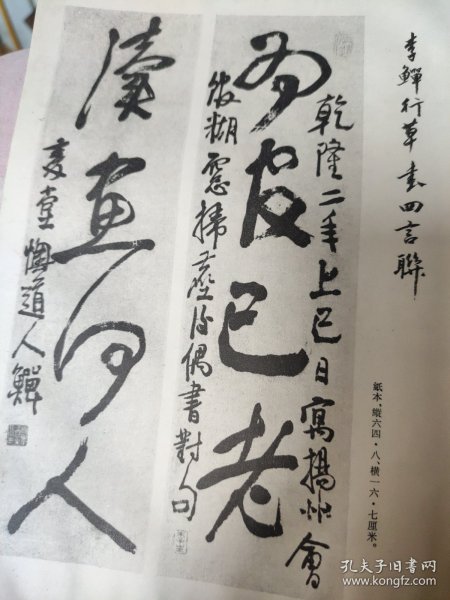 李鱓行草書四言聯
紙本，縱六四·八，橫一六·七厘米。
已老
乾隆二年上巳日寓揚州會
館糊窓掃塵後偶書對句
讀畫何人
復堂懊道人鱓
孔夫子旧书网
www.kongfz.com